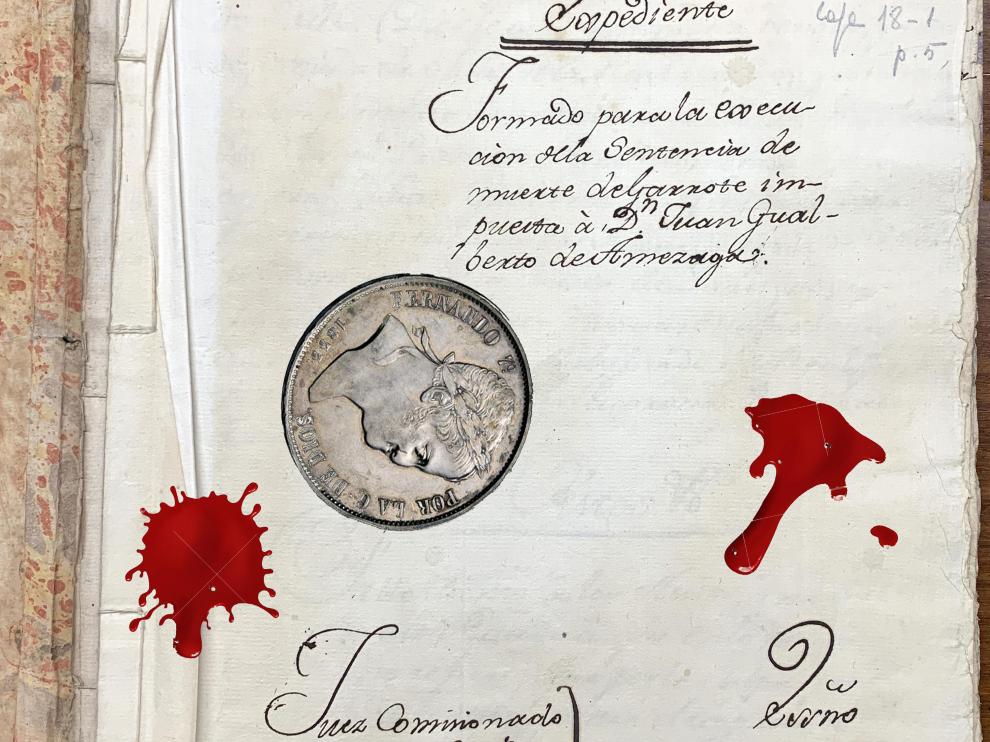 Expediente
Caja 18-1
p. 5,
Formado para la execu-
cion della Sentencia de
muerte de Garrote im-
puesta à Dn. Juan Gual-
berto de Amezaga.
FERNANDO 7º
POR LA G. DE DIOS
1822
Juez Comisionado
Essno